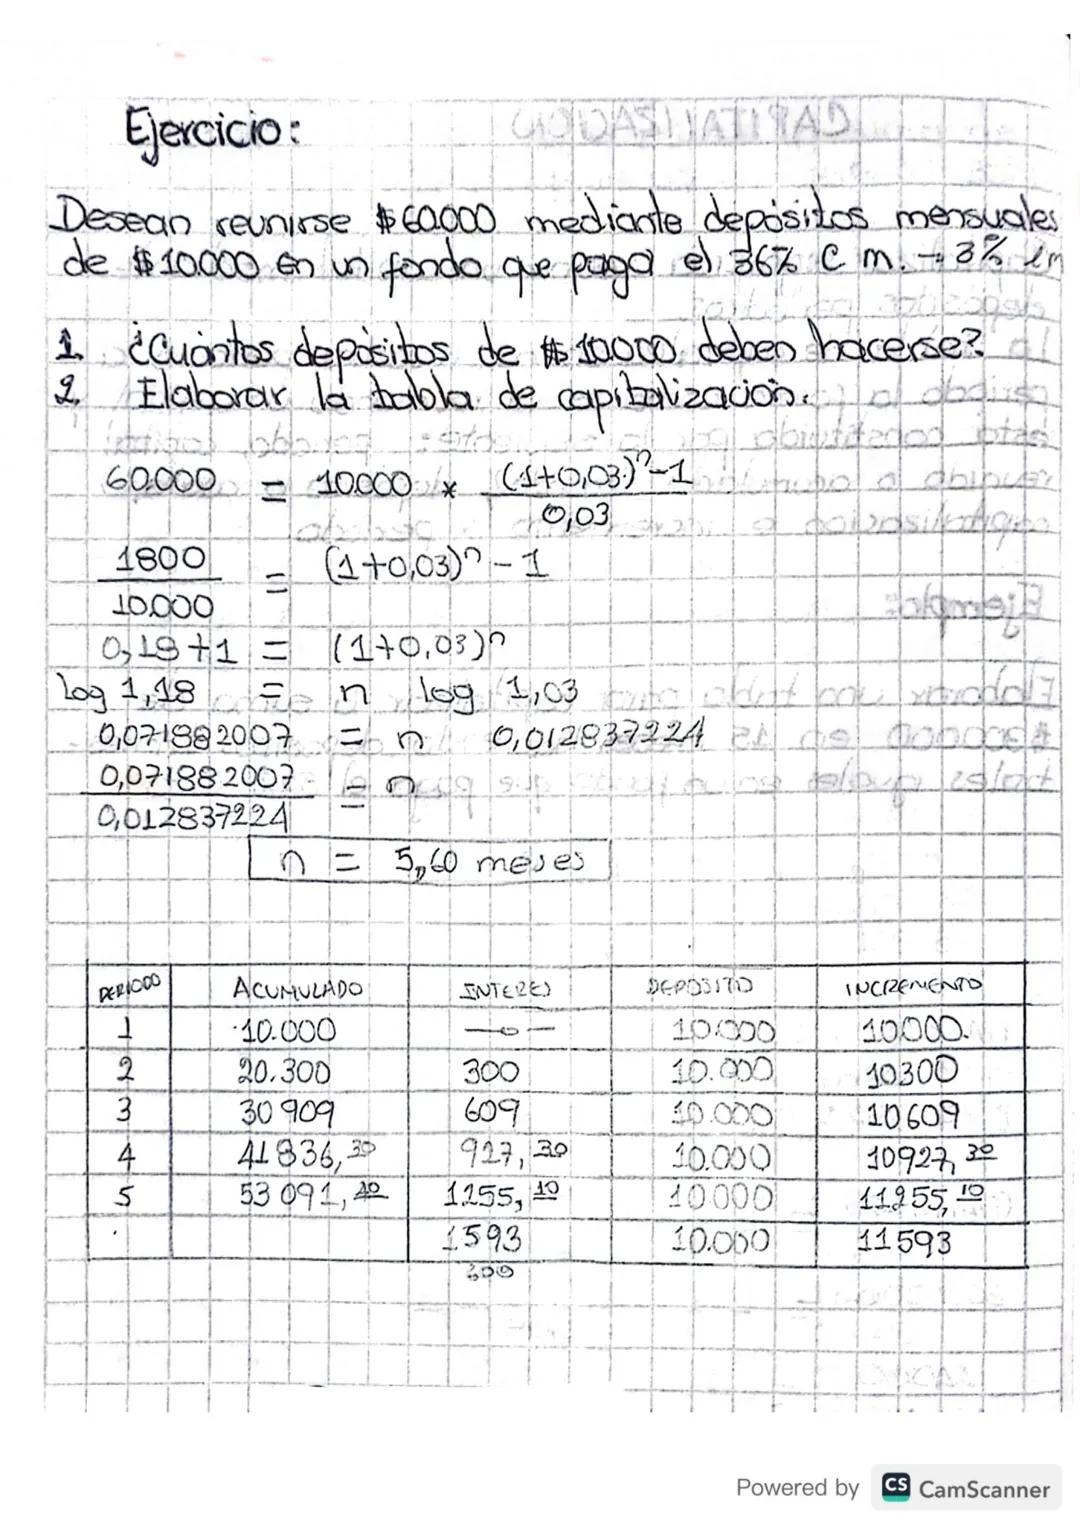 Ejercicio:
Desean reunirse $60.000 mediante depósitos mensuales
de $10.000 en un fondo que paga el 36% C m. → 3% em
1. ¿Cuántos depósitos de $10.000 deben hacerse?
2. Elaborar la tabla de capitalización.
60.000 = 10.000 * (1+0,03)^n - 1
0,03
1800 = (1+0,03)^n - 1
10.000
0,18+1 = (1+0,03)^n
log 1,18 = n log 1,03
0,071882007 = n 0,012837224
0,071882007 = n
0,012837224
n = 5,60 meses
PERIODO ACUMULADO INTERES DEPOSITO INCREMENTO
1 10.000 —o— 10.000 10.000.
2 20.300 300 10.000 10300
3 30 909 609 10.000 10 609
4 41 836,30 927,30 10.000 10927,30
5 53 091,40 1255,10 10.000 11255,10
. 1593 10.000 11593
Powered by CS CamScanner